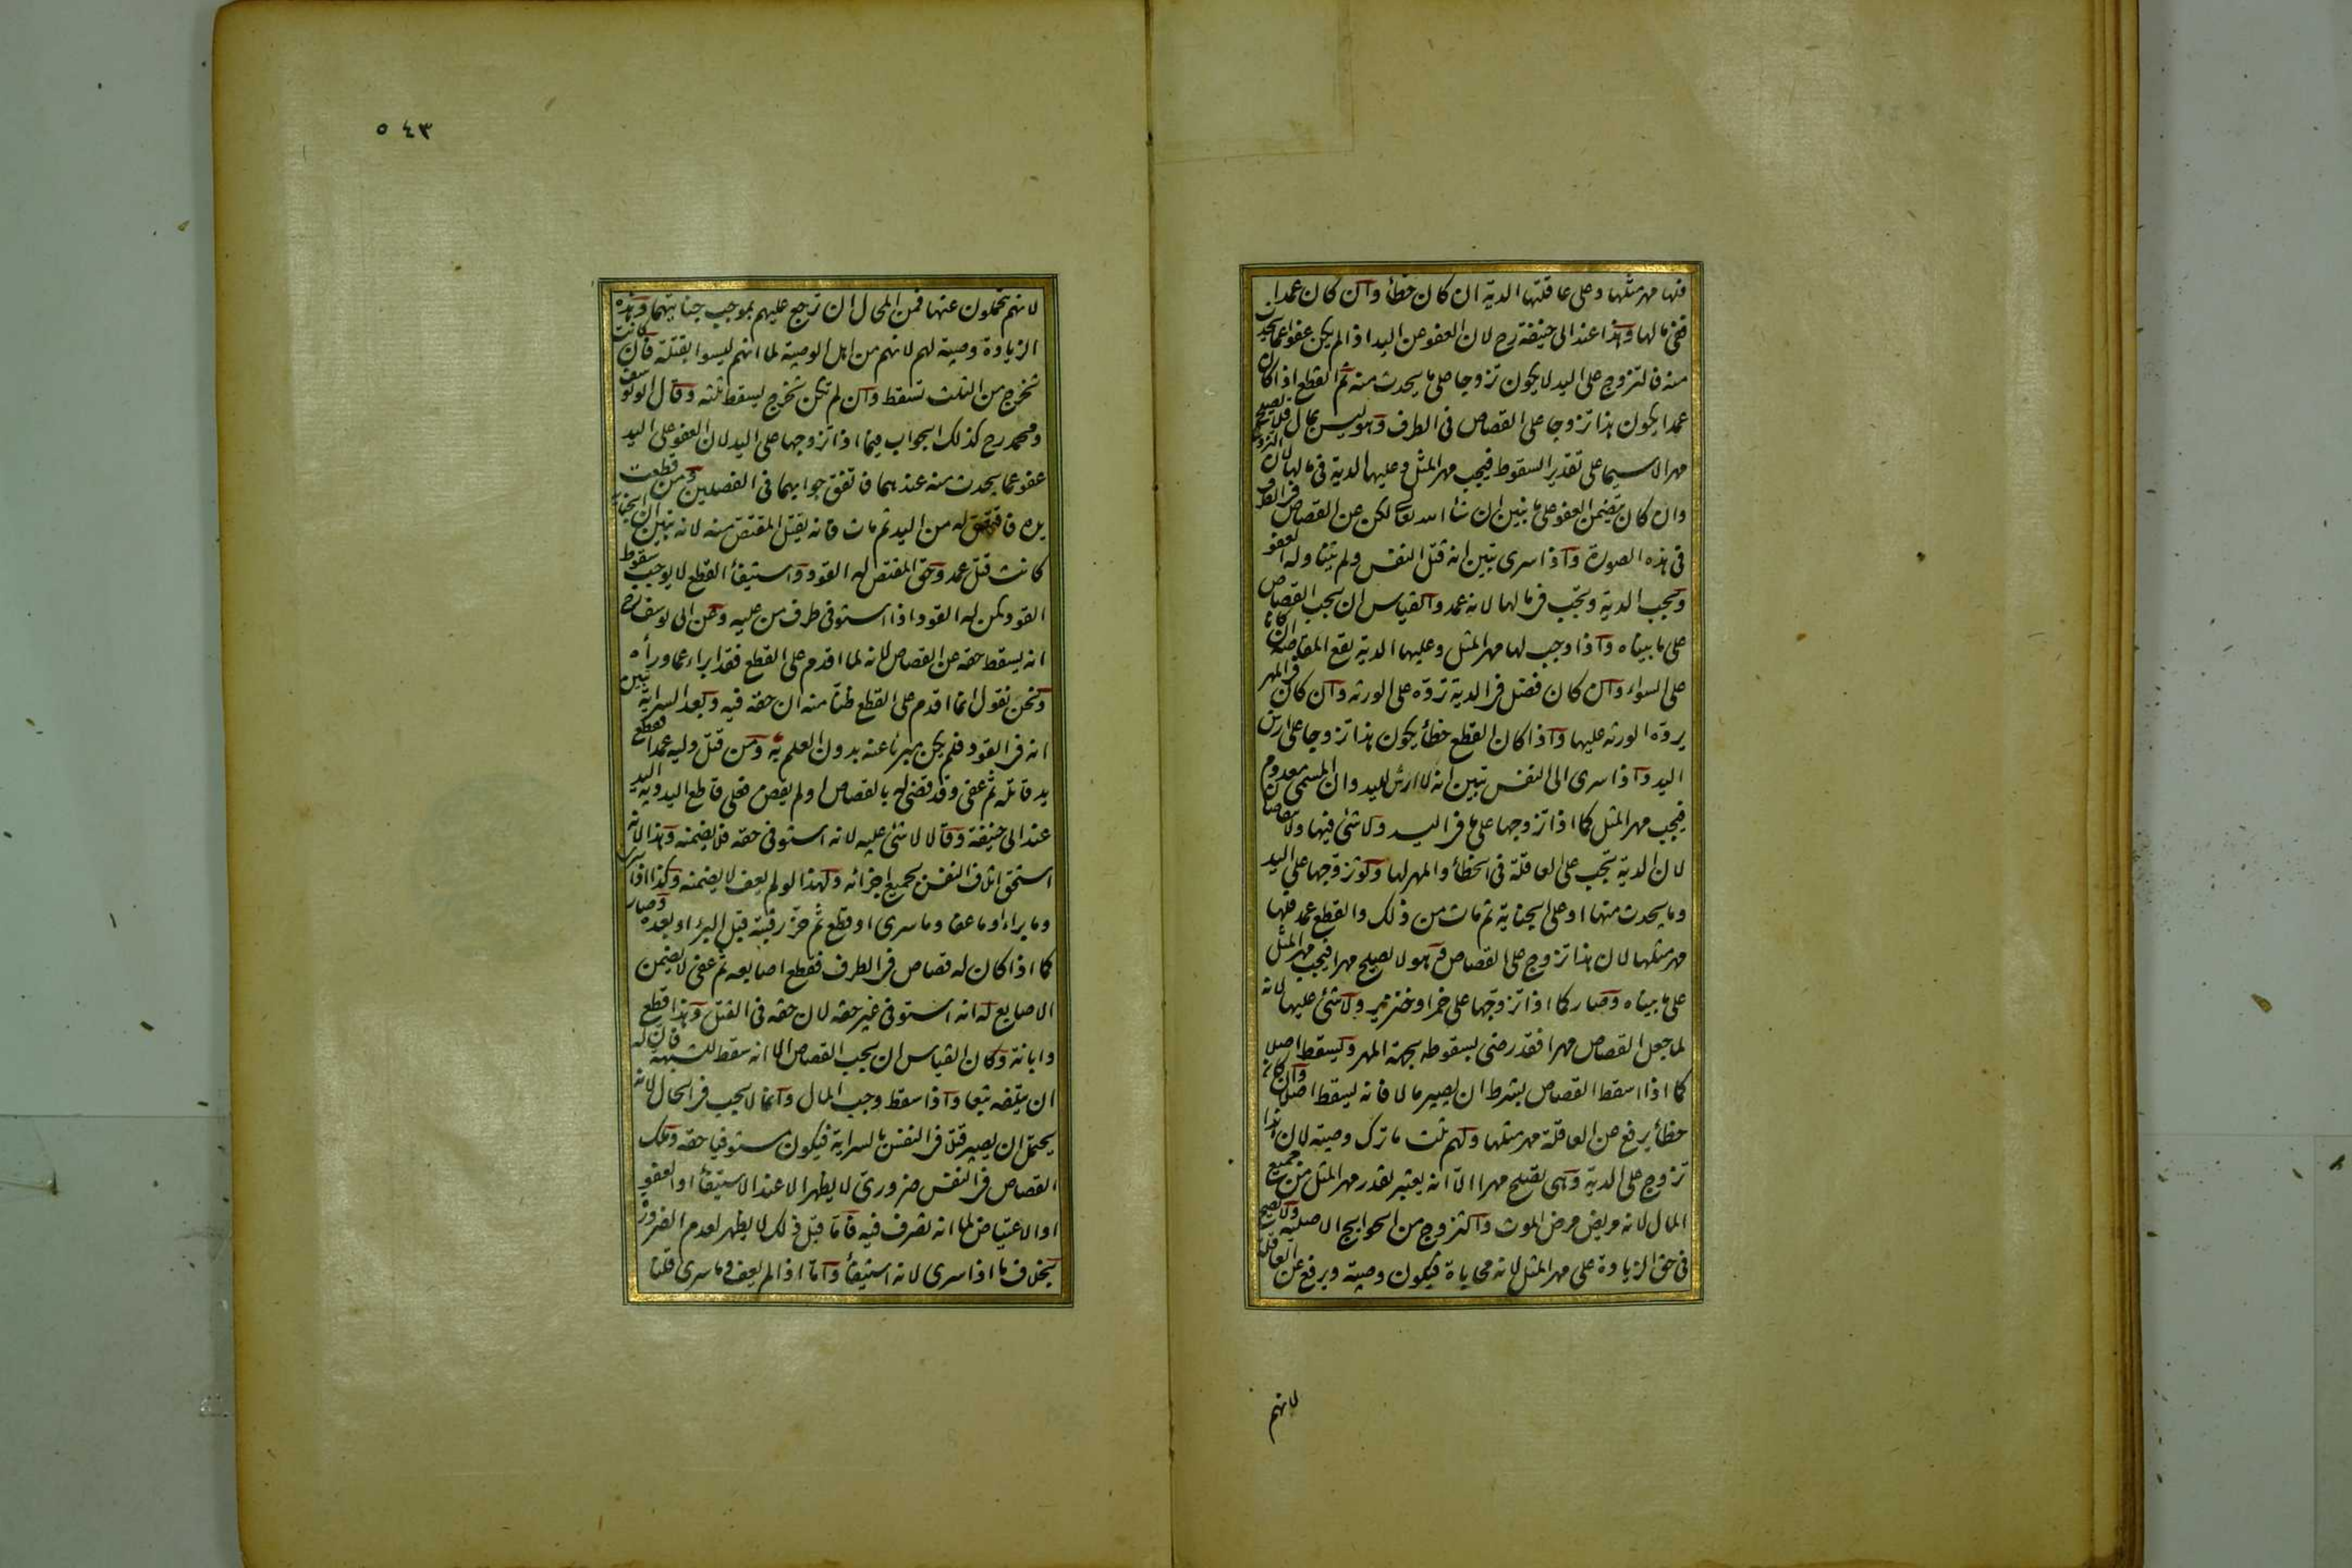 فلها مهر مثلها وعلى عاقلتها الدية ان كان خطأ وان كان عمدا
ففي مالها وهذا عند ابى حنيفة رح لان العفو عن اليد اذا لم يكن عفوا عما يحدث
منه فالتزوج على اليد لا يكون تزوجا على ما يحدث منه ثم القطع اذا كان
عمدا يكون هذا تزوجا على القصاص فى الطرف وهو ليس بمال فلا يصلح
مهرا لا سيما على تقدير السقوط فيجب مهر المثل وعليها الدية فى مالها لان التزوج
وان كان يتضمن العفو على ما نبين ان شأ الله تعالى لكن عن القصاص فى الطرف
فى هذه الصورة واذا سرى تبين انه قتل النفس ولم يتناوله العفو
فيجب الدية وتجب فى مالها لانه عمد والقياس ان يجب القصاص
على ما بيناه واذا وجب لها مهر المثل وعليها الدية تقع المقاصة ان كانا
على السواء وان كان فضل فى الدية ترده على الورثه وان كان فى المهر
يرده الورثه عليها واذا كان القطع خطأ يكون هذا تزوجا على ارش
اليد واذا سرى الى النفس تبين انه لا ارش لليد وان المسمى معدوم
فيجب مهر المثل كما اذا تزوجها على ما فى اليد ولا شئ فيها ولا يتقاصان
لان الدية تجب على العاقلة فى الخطأ والمهر لها ولو تزوجها على اليد
وما يحدث منها او على الجناية ثم مات من ذلك والقطع عمد فلها
مهر مثلها لان هذا تزوج على القصاص وهو لا يصلح مهرا فيجب مهر المثل
على ما بيناه وصار كما اذا تزوجها على خمر او خنزير ولا شئ عليها لانه
لما جعل القصاص مهرا فقد رضى بسقوطه بجهة المهر فيسقط اصلا
كما اذا اسقط القصاص بشرط ان يصير مالا فانه يسقط اصلا وان كان
خطأ يرفع عن العاقلة مهر مثلها ولهم ثلث ما ترك وصية لان هذا
تزوج على الدية وهى تصلح مهرا الا انه يعتبر بقدر مهر المثل من جميع
المال لانه مريض مرض الموت والتزوج من الحوايج الاصلية ولا يصح
فى حق الزيادة على مهر المثل لانه محاباة فيكون وصية ويرفع عن العاقلة
لانهم
٥٤٣
لانهم يتحملون عنها فمن المحال ان ترجع عليهم بموجب جنايتها وهذه
الزيادة وصية لهم لانهم من اهل الوصية لما انهم ليسوا بقتلة فان كانت
تخرج من الثلث تسقط وان لم تكن تخرج يسقط ثلثه وقال ابو يوسف
ومحمد رح كذلك الجواب فيما اذا تزوجها على اليد لان العفو على اليد
عفو عما يحدث منه عندهما فاتفق جوابهما فى الفصلين ومن قطعت
يده فاقتص له من اليد ثم مات فانه يقتل المقتص منه لانه تبين ان الجناية
كانت قتل عمد وحق المقتص له القود واستيفأ القطع لا يوجب سقوط
القود كمن له القود اذا استوفى طرف من عليه وعن ابى يوسف رح
انه يسقط حقه عن القصاص لانه لما اقدم على القطع فقد ابراء عما ورأه
ونحن نقول انما اقدم على القطع ظنا منه ان حقه فيه وبعد السراية تبين
انه فى القود فلم يكن مبرئا عنه بدون العلم به ومن قتل وليه عمدا فقطع
يد قاتله ثم عفى وقد قضى له بالقصاص او لم يقض فعلى قاطع اليد دية اليد
عند ابى حنيفة وقالا لا شئ عليه لانه استوفى حقه فلا يضمنه وهذا لانه
استحق اتلاف النفس بجميع اجزائه ولهذا لو لم يعف لا يضمنه وكذا اذا سرى
وما براء او ما عفا وما سرى او قطع ثم حز رقبته قبل البرء او بعده وصار
كما اذا كان له قصاص فى الطرف فقطع اصابعه ثم عفى لا يضمن
الاصابع له انه استوفى غير حقه لان حقه فى القتل وهذا قطع
وابانة وكان القياس ان يجب القصاص الا انه سقط للشبهة فان له
ان يتلفه تبعا واذا سقط وجب المال وانما لا يجب فى الحال لانه
يحتمل ان يصير قتلا فى النفس بالسراية فيكون مستوفيا حقه وملك
القصاص فى النفس ضرورى لا يظهر الا عند الاستيفأ او العفو
او الاعتياض لما انه تصرف فيه فاما قبل ذلك لا يظهر لعدم الضرورة
بخلاف ما اذا سرى لانه استيفأ واما اذا لم يعف وما سرى قلنا